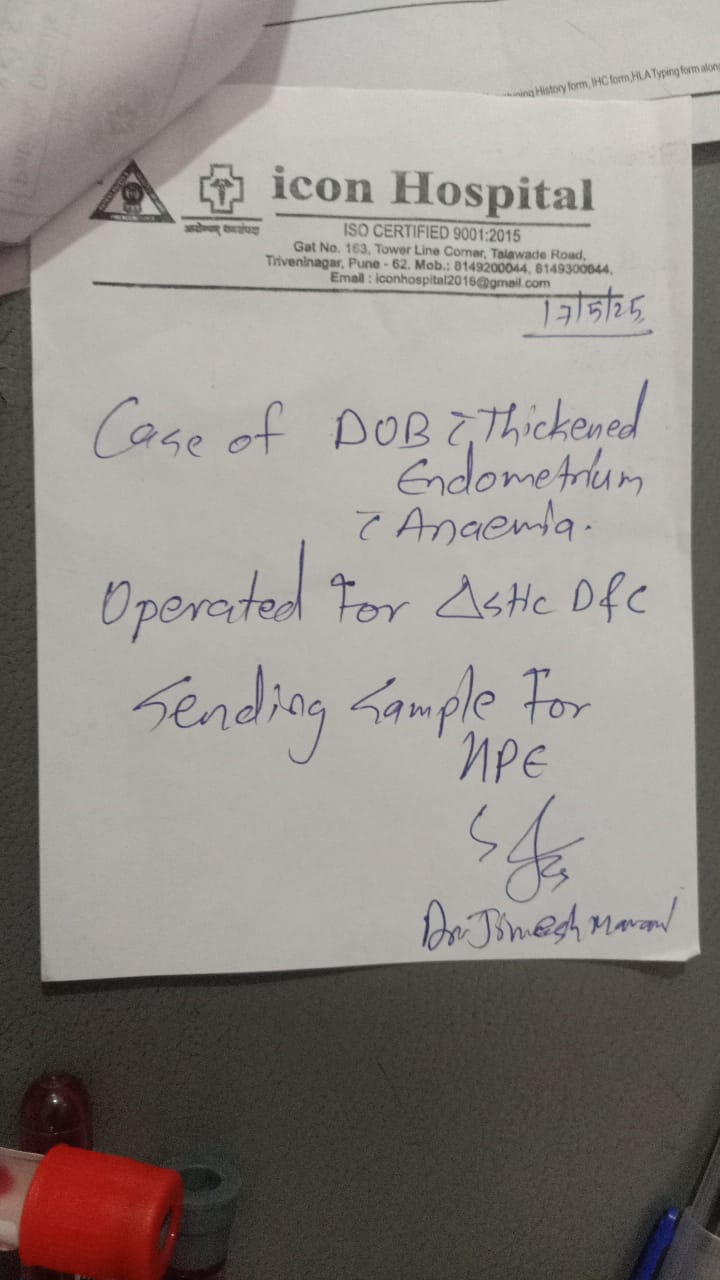 ning History form, IHC form,HLA Typing form along
icon Hospital
आरोग्यम् धनसंपदा
ISO CERTIFIED 9001:2015
Gat No. 163, Tower Line Corner, Talawade Road,
Triveninagar, Pune - 62. Mob.: 8149200044, 8149300044,
Email : iconhospital2016@gmail.com
17/5/25
Case of DUB c̄ Thickened
Endometrium
c̄ Anaemia.
Operated For ΔstIc D&C
Sending Sample For
HPE
Dr. Jimesh